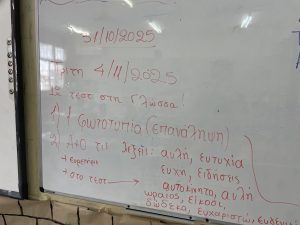 31/10/2025
Τρίτη 4/11/2025
Τεστ στη Γλώσσα!
1) 1 φωτοτυπία (επανάληψη)
2) Από τις λέξεις: αυλή, ευτυχία
ευχή, ειδήσεις
→ στο τεστ → αυτοκίνητο, αυλή
ωραίος, είκοσι,
δώδεκα, ευχαριστώ,